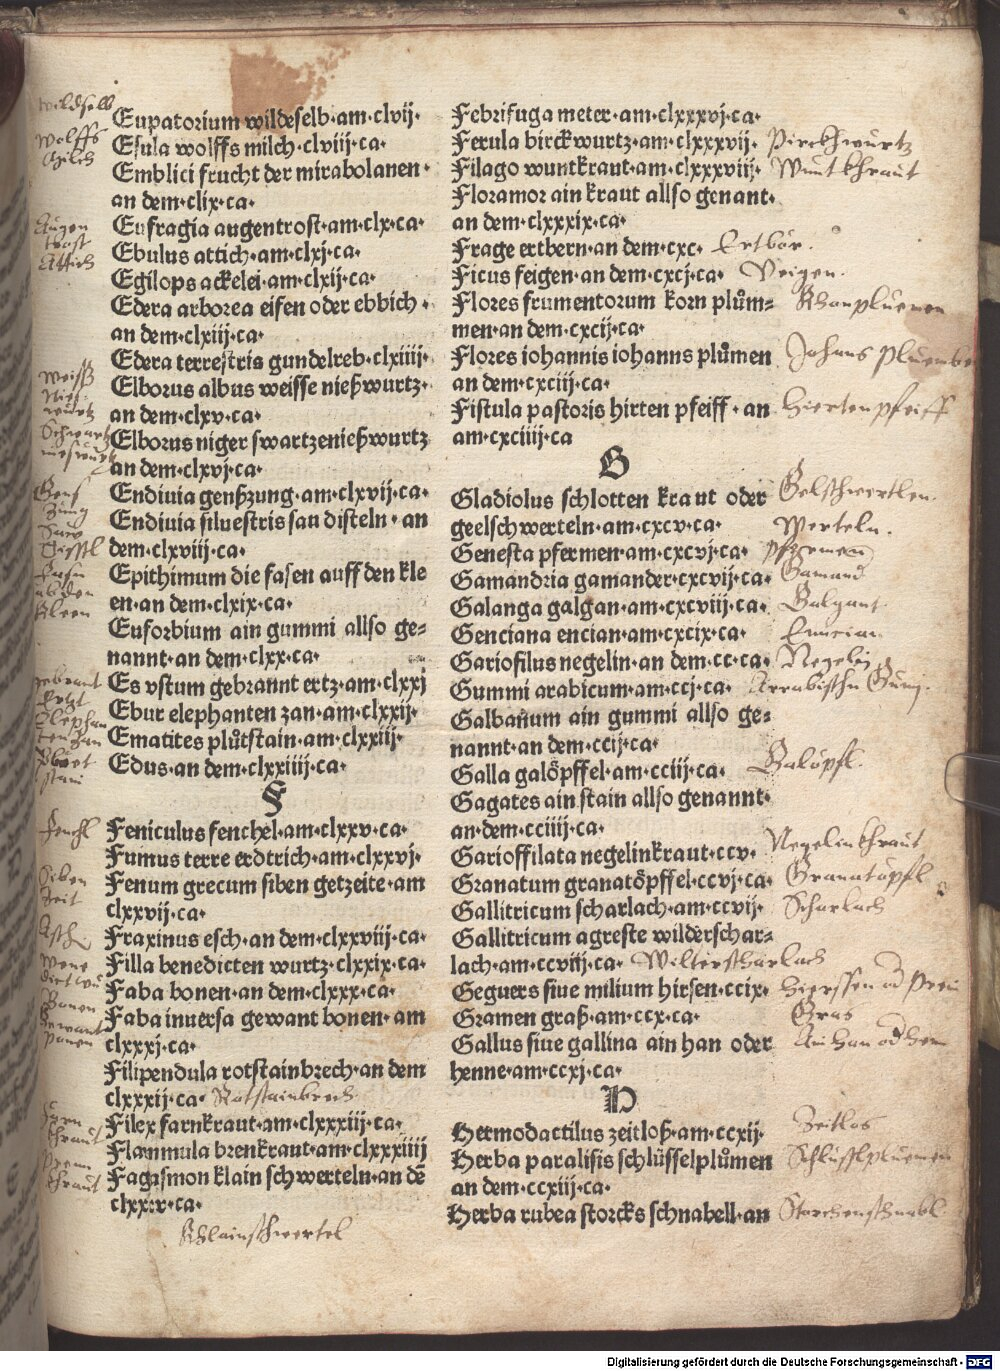 wildselb
Eupatorium wildeselb·am·clvij·
Wolffs
Milch
Esula wolffs milch·clviij·ca·
Emblici frucht der mirabolanen·
an dem·clix·ca·
Augen
trost
Eufragia augentrost·am·clx·ca·
Attich
Ebulus attich·am·clxj·ca·
Egilops ackelei·am·clxij·ca·
Edera arborea eisen oder ebbich·
an dem·clxiij·ca·
Edera terrestris gundelreb·clxiiij·
Weiss
Nies
wurtz
Elborus albus weisse nießwurtz·
an dem·clxv·ca·
Schwartz
nieswurtz
Elborus niger swartzenießwurtz
an dem·clxvj·ca·
Gens
Zung
Endiuia genßzung·am·clxvij·ca·
Saw
Distl
Endiuia siluestris sau disteln·an
dem·clxviij·ca·
Epithimum die fasen auff den kle
en·an dem·clxix·ca·
Euforbium ain gummi allso ge=
nannt·an dem·clxx·ca·
gebrant
Ertzt
Es vstum gebrannt ertz·am·clxxj
Elephan
ten zan
Ebur elephanten zan·am·clxxij·
Ematites plůtstain·am·clxxiij·
Edus·an dem·clxxiiij·ca·
F
Fenchl
Feniculus fenchel·am·clxxv·ca·
Fumus terre erdtrich·am·clxxvj·
Siben
Zeit
Fenum grecum siben getzeite·am
clxxvij·ca·
Fraxinus esch·an dem·clxxviij·ca·
Filla benedicten wurtz·clxxix·ca·
Bonen
Faba bonen·an dem·clxxx·ca·
Gewant
ponen
Faba inuersa gewant bonen·am
clxxxj·ca·
Filipendula rotstainbrech·an dem
clxxxij·ca· Rotstainbrech
Farn
khraut
Filex farnkraut·am·clxxxiij·ca·
Pren
khraut
Flammula brenkraut·am·clxxxiiij
Fagasmon klain schwerteln·an dē
clxxxv·ca·
Khlainschwertel
Febrifuga meter·am·clxxxvj·ca·
Ferula birckwurtz·am·clxxxvij· Pirckhwurtz
Filago wuntkraut·am·clxxxviij· Wunt khraut
Floramor ain kraut allso genant·
an dem·clxxxix·ca·
Frage ertbern·an dem·cxc· Ertbör.
Ficus feigen·an dem·cxcj·ca· Veigen.
Flores frumentorum korn plům= Khornpluemen
men·an dem·cxcij·ca·
Flores iohannis iohanns plůmen Johans pluemben
an dem·cxciij·ca·
Fistula pastoris hirten pfeiff·an Hierten pfeiff
am·cxciiij·ca
G
Gladiolus schlotten kraut oder Gelschwertlen.
geelschwerteln·am·cxcv·ca· Werteln.
Genesta pfermen·am·cxcvj·ca· pfremen
Gamandria gamander·cxcvij·ca· Gamand
Galanga galgan·am·cxcviij·ca· Galgant
Genciana encian·am·cxcix·ca· Encian
Gariofilus negelin·an dem·cc·ca· Negelin
Gummi arabicum·am·ccj·ca· Arrabisch Gumj.
Galbanum ain gummi allso ge=
nannt·an dem·ccij·ca·
Galla galöpffel·am·cciij·ca· Galöpfl.
Gagates ain stain allso genannt·
an·dem·cciiij·ca·
Garioffilata negelinkraut·ccv· Negelin khraut
Granatum granatöpffel·ccvj·ca· Granatäpfl
Gallitricum scharlach·am·ccvij· Scharlach
Gallitricum agreste wilderschar=
lach·am·ccviij·ca· Wilterscharlach
Geguers siue milium hirsen·ccix· Hierssen od Prein
Gramen graß·am·ccx·ca· Gras
Gallus siue gallina ain han oder Ain Han od Hen
henne·am·ccxj·ca·
H
Hermodactilus zeitloß·am·ccxij· Zeitlos
Herba paralisis schlüsselplůmen Schlüsslpluemen
an dem·ccxiij·ca·
Herba rubea storcks schnabell·an Storchenschnabl
Digitalisierung gefördert durch die Deutsche Forschungsgemeinschaft - DFG